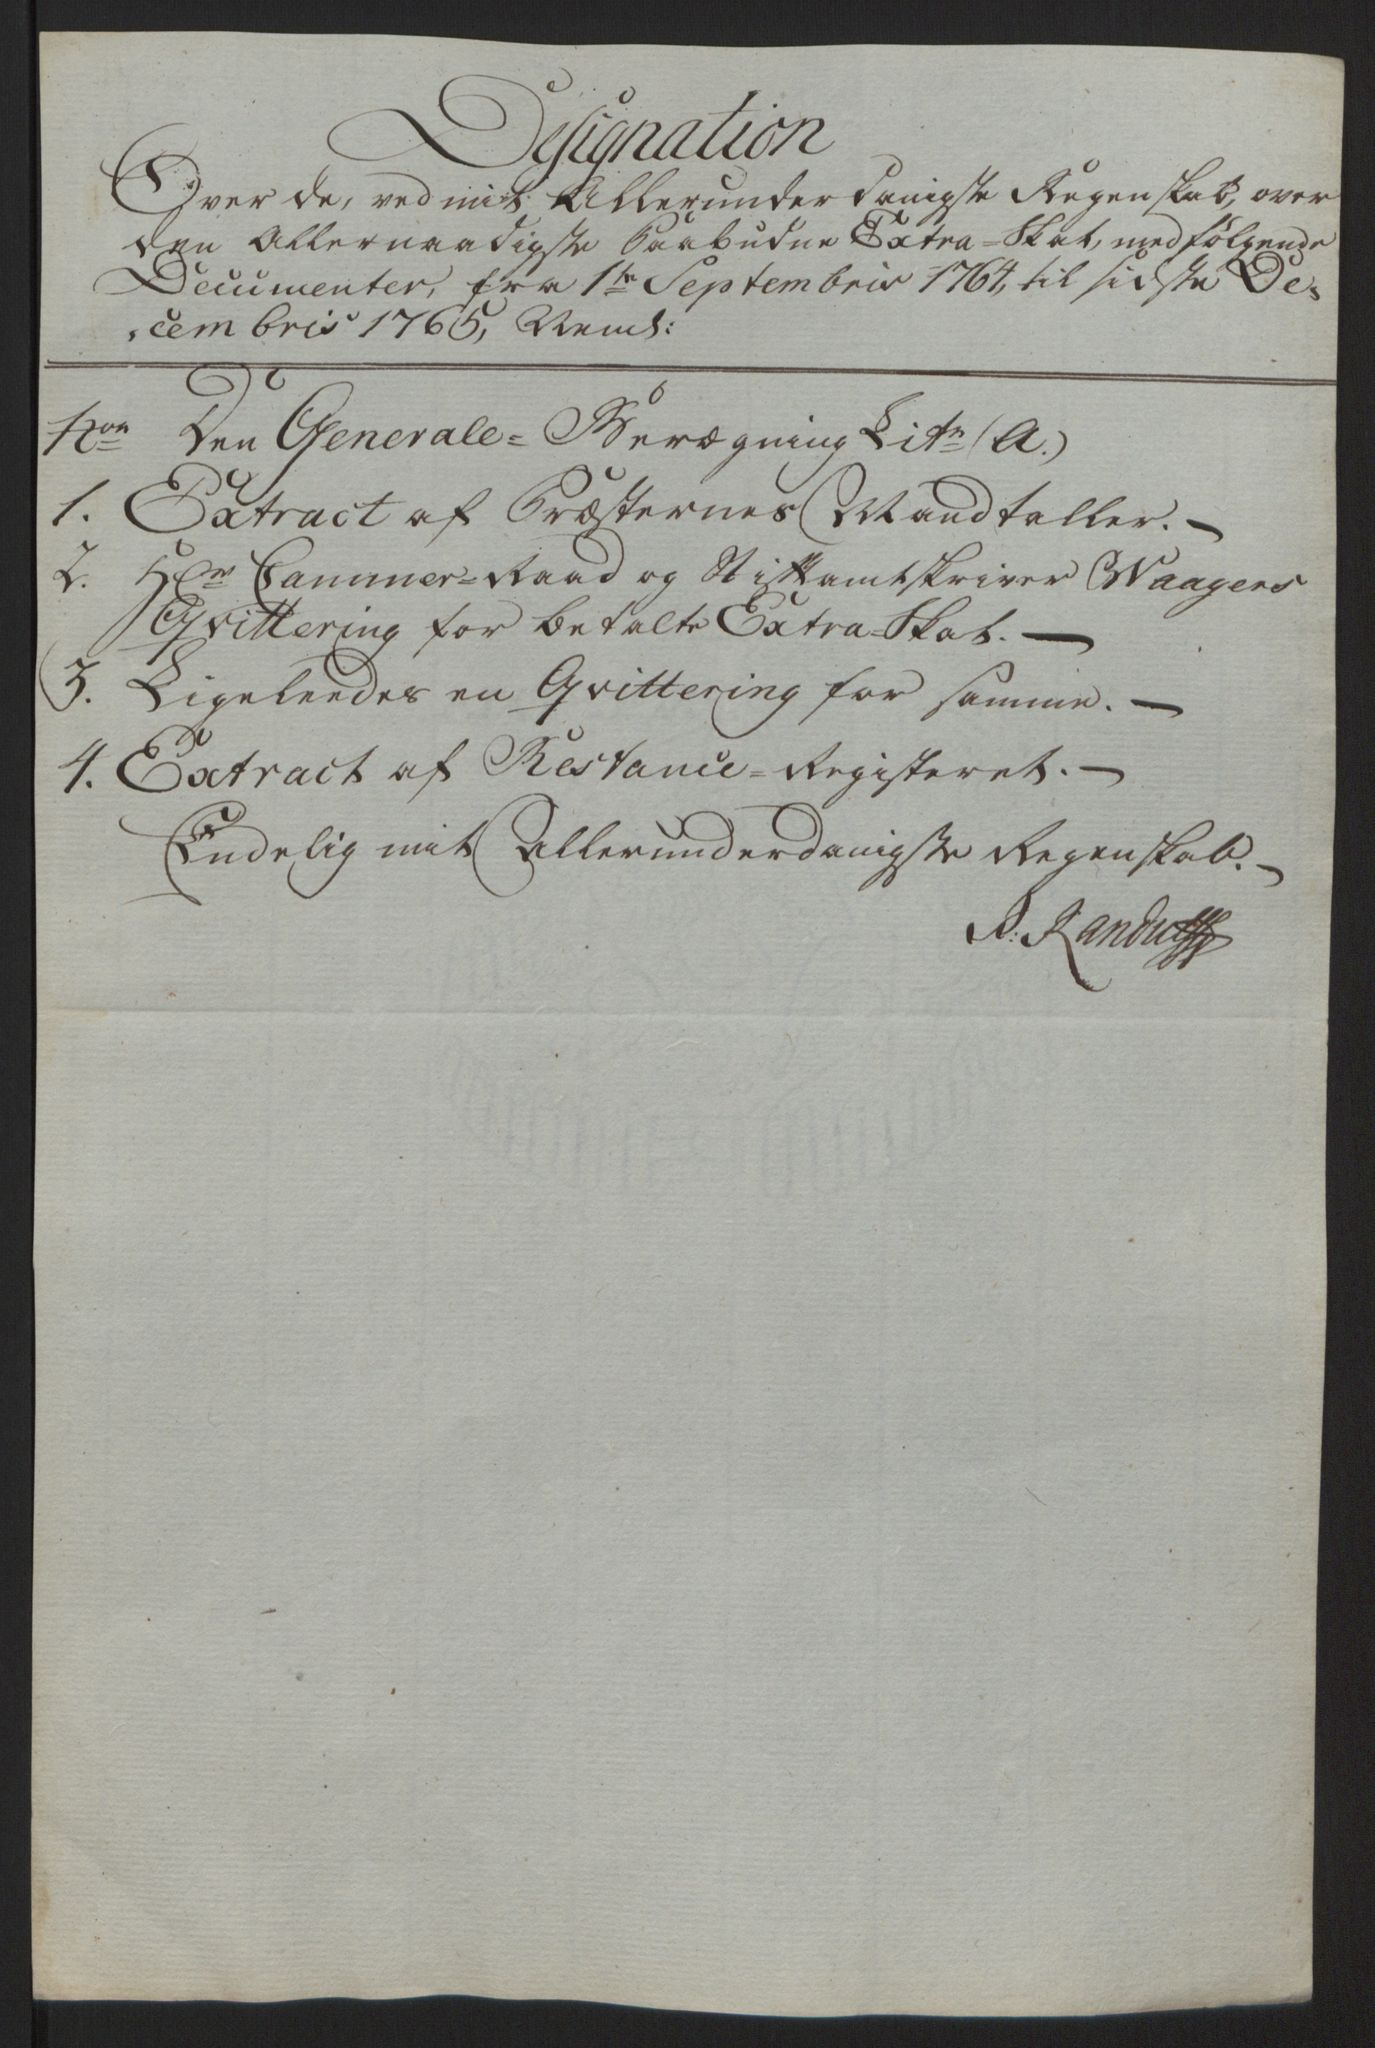 Designation
Over de, ved mit Allerunderdanigste Regenskab, over
den Allernaadigste Paabudne Extra=Skat, medfølgende
Documenter, fra 1te Septembris 1764, til sidste De-
-cembris 1765, Neml:
No Den Generale=Beregning Litr (A.)
1. Extract af Præsternes Mandtaller.
2. Hr Cammer=Raad og Stiftamtskriver Waagers
Qvittering for betalte Extra=Skat.
3. Ligeleedes en Qvittering for samme.
4. Extract af Restance=Registeret.
Endelig mit Allerunderdanigste Regenskab.
Randulff